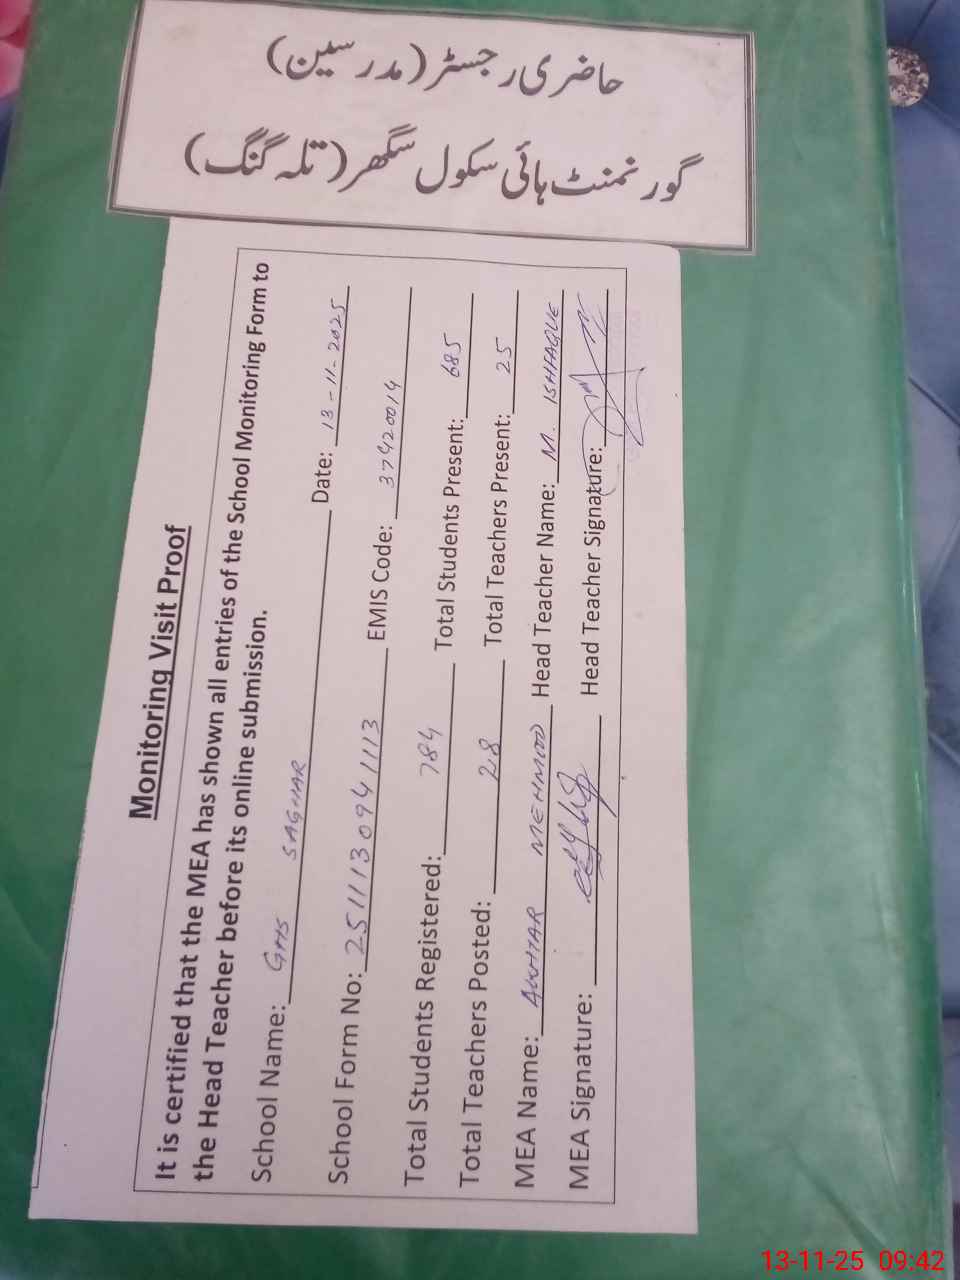 حاضری رجسٹر (مدرسین)
گورنمنٹ ہائی سکول سگھر (تلہ گنگ)
Monitoring Visit Proof
It is certified that the MEA has shown all entries of the School Monitoring Form to
the Head Teacher before its online submission.
School Name: GHS SAGHAR Date: 13-11-2025
School Form No: 251113094 1113 EMIS Code: 37420014
Total Students Registered: 784 Total Students Present: 685
Total Teachers Posted: 28 Total Teachers Present: 25
MEA Name: AKHTAR MEHMOOD Head Teacher Name: M. ISHFAQUE
MEA Signature: Head Teacher Signature:
13-11-25 09:42